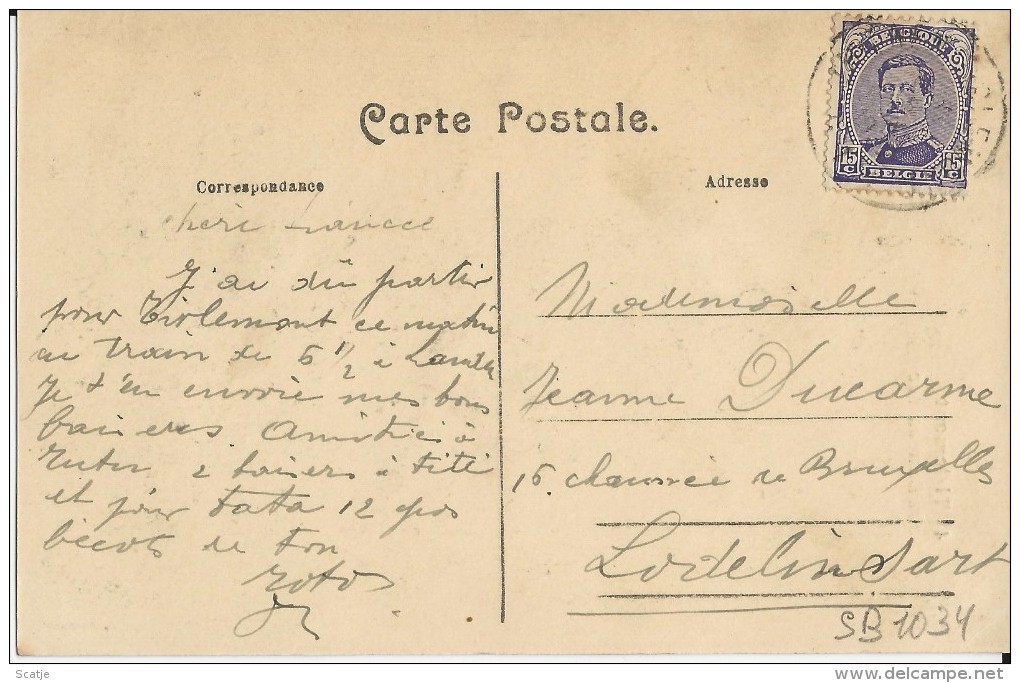 Carte Postale.
Correspondance
J'ai dû partir
pour Tirlemont ce matin
au train de 6 1/2 à Landen
Je t'en envoie mes bons
baisers. Amitiés à
2 baisers à titi
et pour tata 12 gros
bécots de ton
Toto
Adresse
BELGIQUE
15 C 15 C
BELGIE
Mademoiselle
Jeanne Ducarme
15 chaussée de Bruxelles
Lodelinsart
SB1034
Scatje
www.delcampe.net